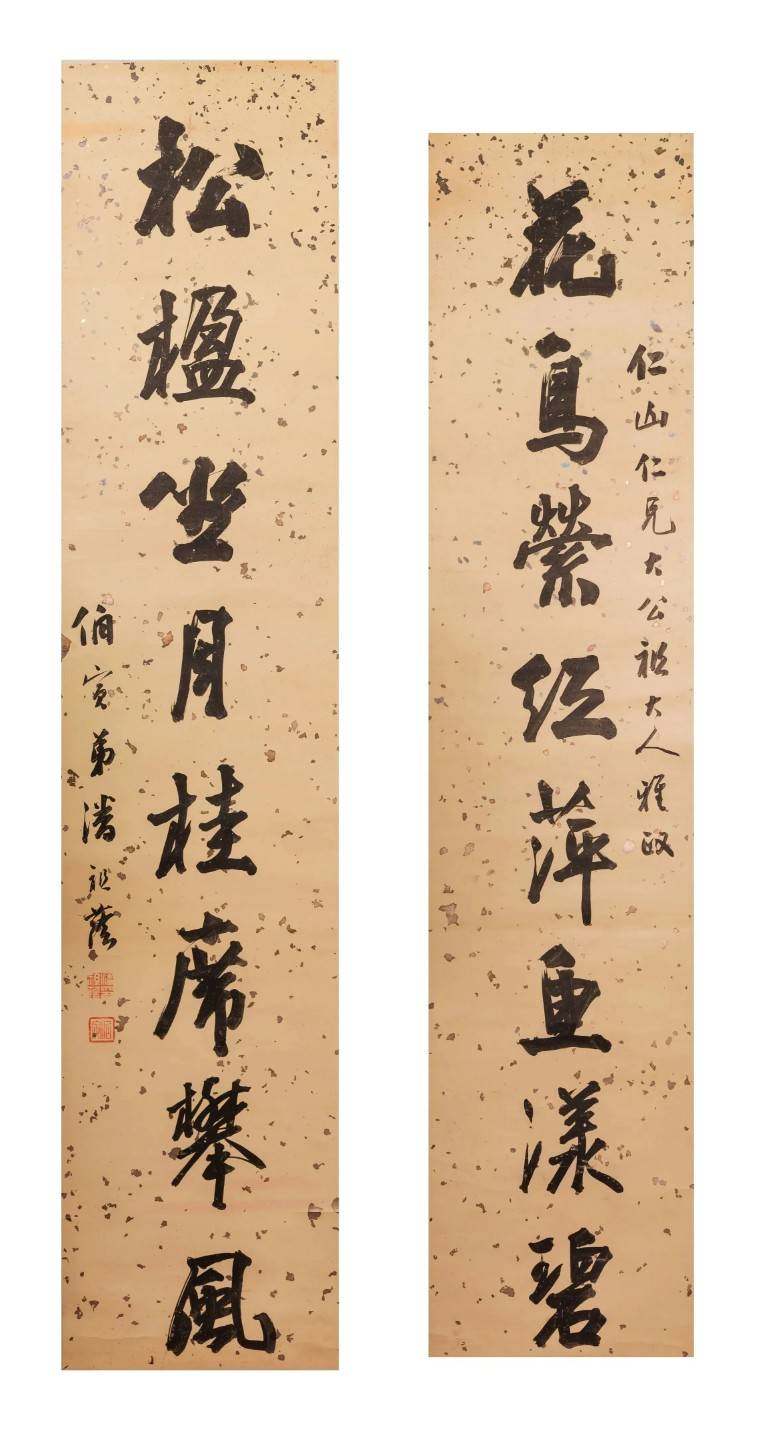 仁山仁兄大公祖大人雅政
花鳥縈紅萍魚漾碧
松楹坐月桂席攀風
伯寅弟潘祖蔭